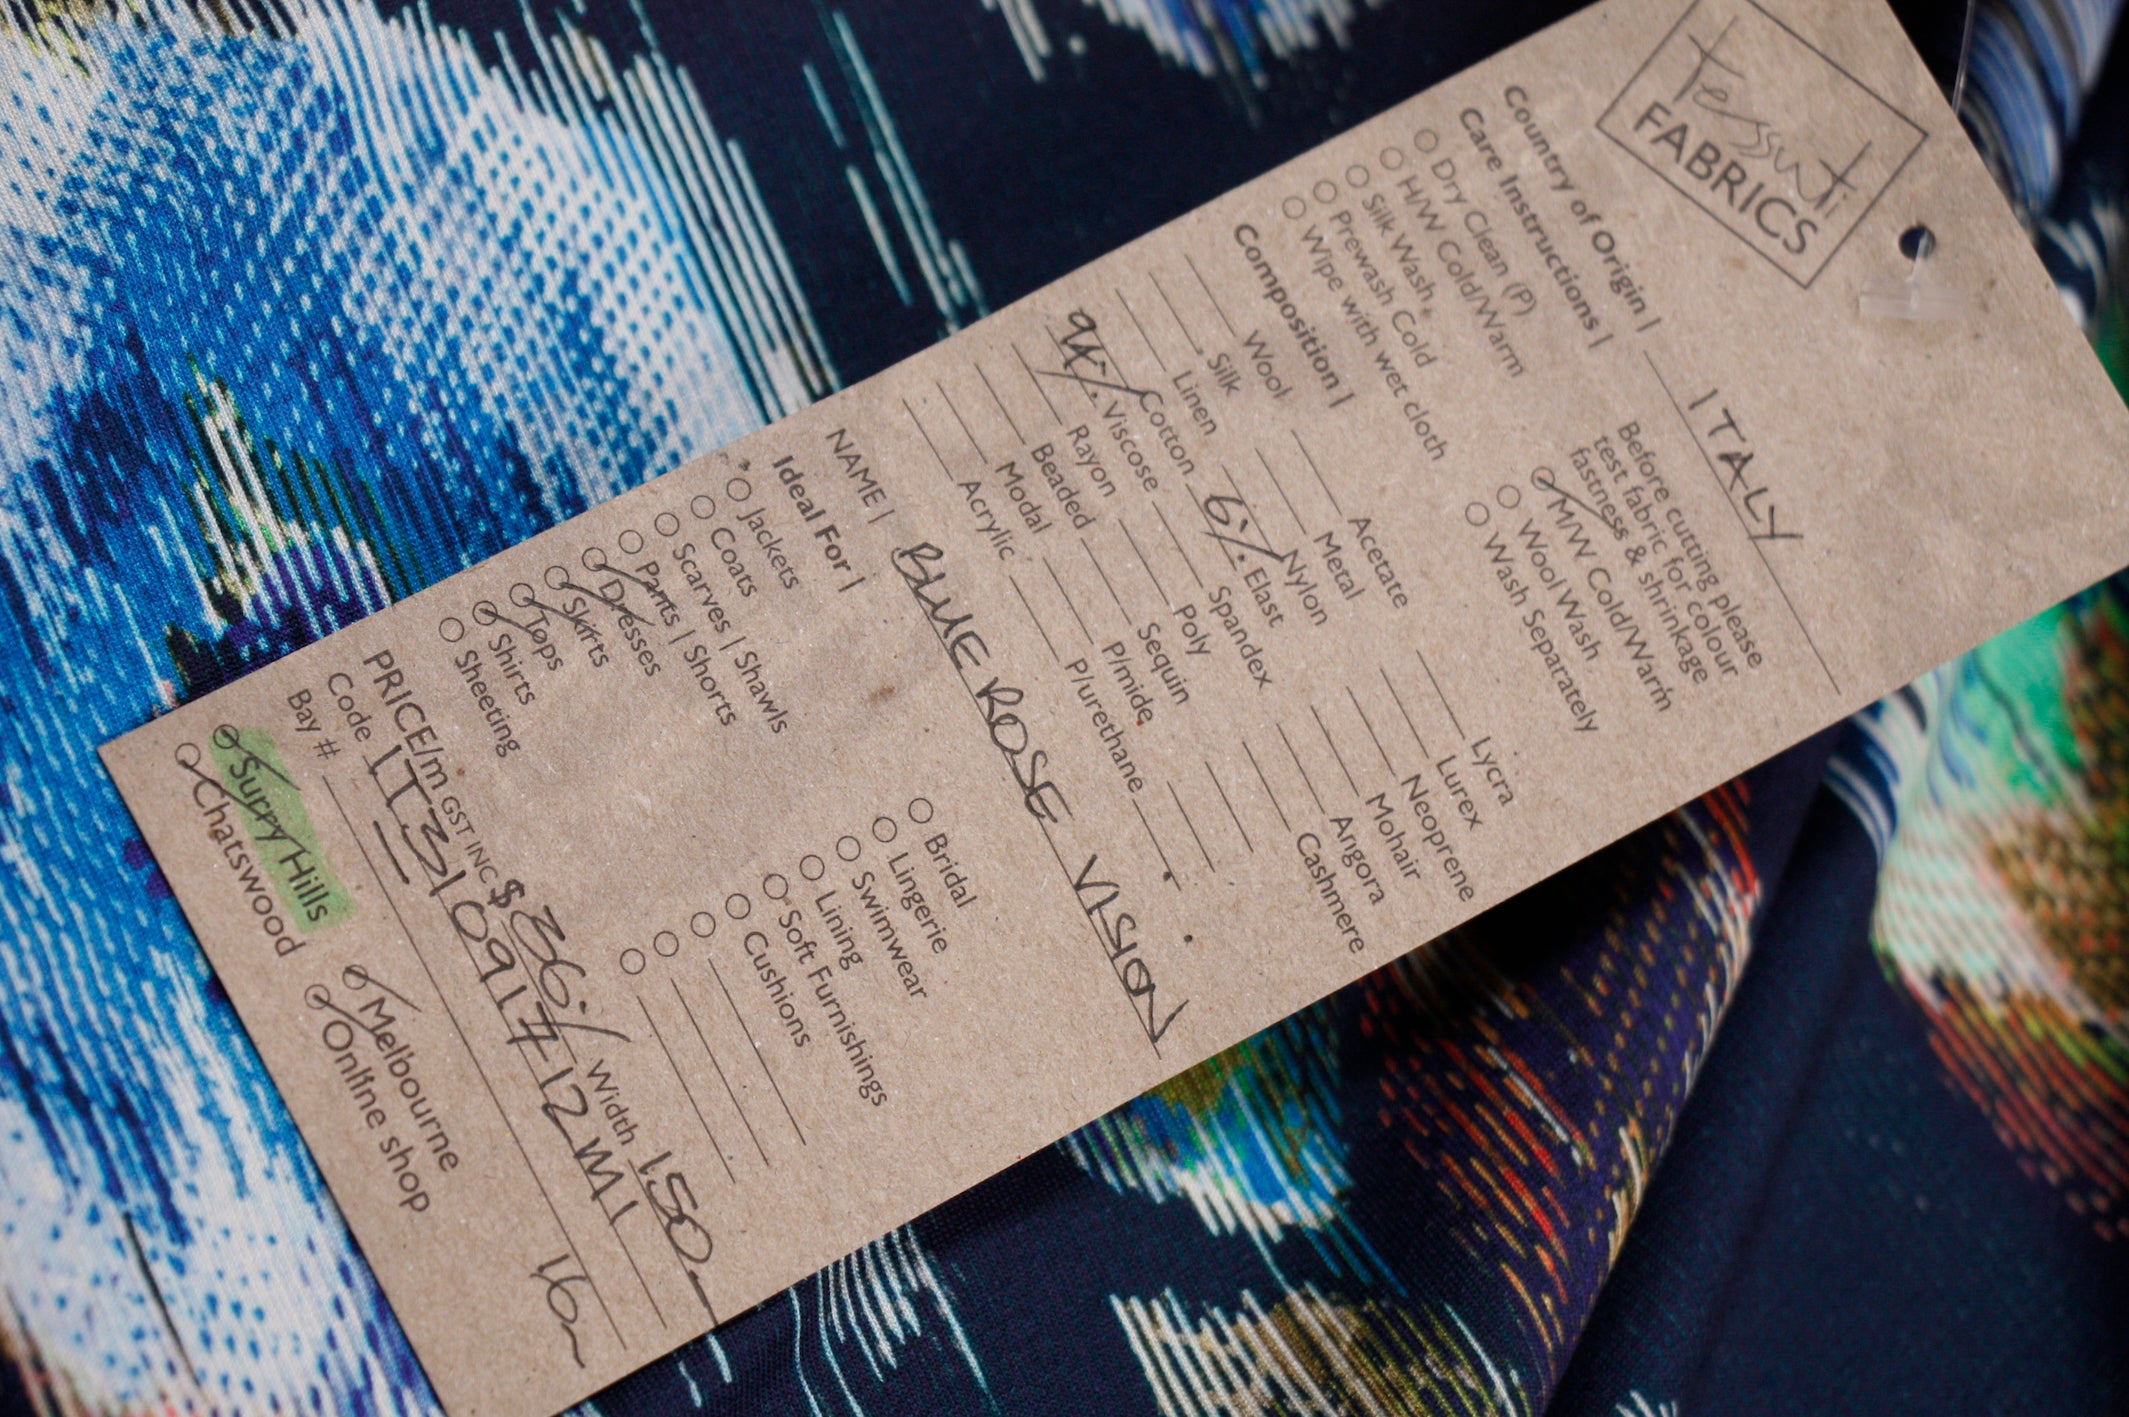 Tessuti
FABRICS
Country of Origin | ITALY
Care Instructions |
Before cutting please
test fabric for colour
fastness & shrinkage
Dry Clean (P)
H/W Cold/Warm
Silk Wash
Prewash Cold
Wipe with wet cloth
M/W Cold/Warm
Wool Wash
Wash Separately
Composition |
Wool
Silk
Linen
Cotton
94% Viscose
Rayon
Beaded
Modal
Acrylic
Acetate
Metal
Nylon
6% Elast
Spandex
Poly
Sequin
P/mide
P/urethane
Lycra
Lurex
Neoprene
Mohair
Angora
Cashmere
NAME | BLUE ROSE VISION
Ideal For |
Jackets
Coats
Scarves | Shawls
Pants | Shorts
Dresses
Skirts
Tops
Shirts
Sheeting
Bridal
Lingerie
Swimwear
Lining
Soft Furnishings
Cushions
PRICE/m GST INC $36./ Width 150
Code IT310917#12M1
Bay # 16
Surry Hills
Chatswood
Melbourne
Online shop